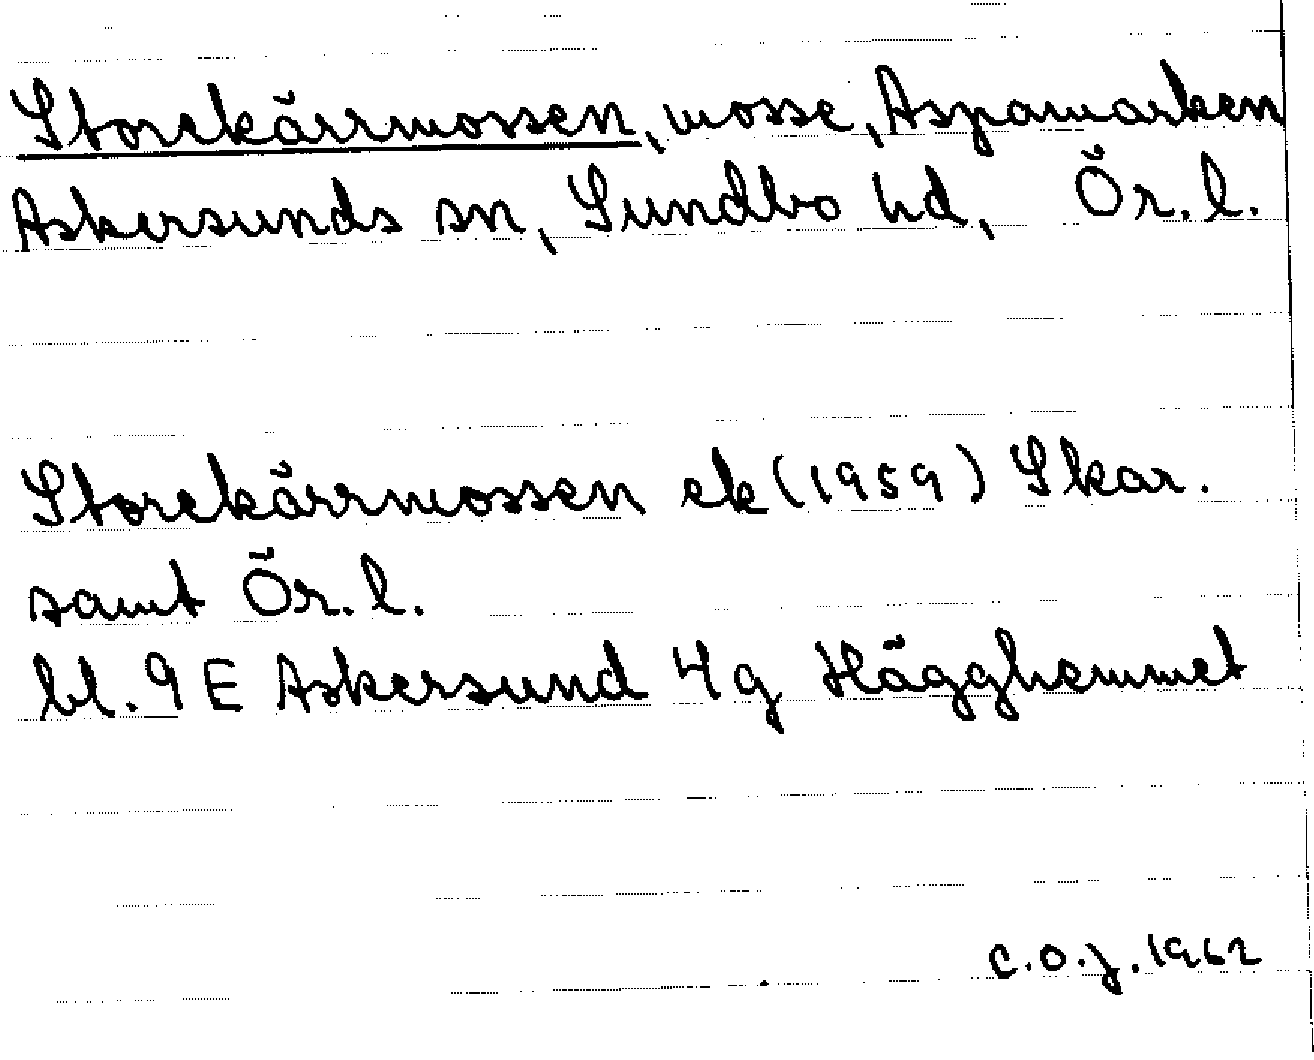 Storekärrmossen, mosse, Aspamarken
Askersunds sn, Sundbo hd, Ör. l.
Storekärrmossen ek (1959) Skar.
samt Ör. l.
bl. 9 E Askersund 4g Hägghemmet
C.O.J. 1962